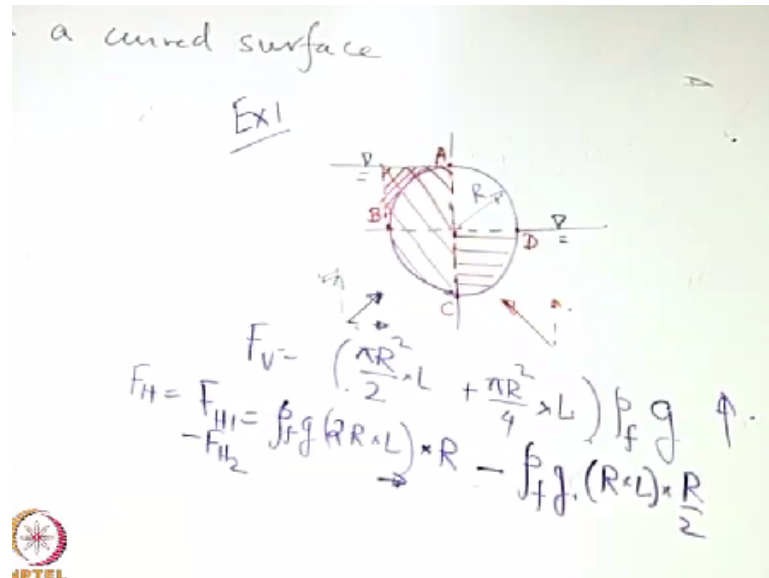 a curved surface
Ex1
A
R
B
D
C
F_V = (πR²/2 × L + πR²/4 × L) ρ_f g ↑.
F_H = F_H1 = ρ_f g (2R × L) × R − ρ_f g. (R × L) × R/2
− F_H2
NPTEL